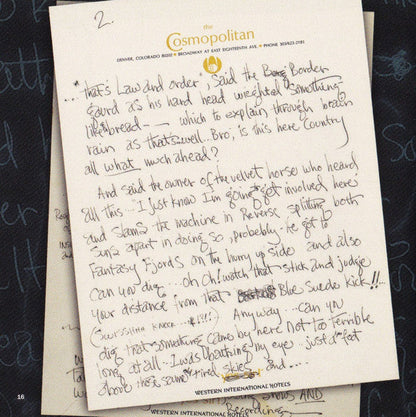 2.
the
Cosmopolitan
DENVER, COLORADO 80202 • BROADWAY AT EAST EIGHTEENTH AVE. • PHONE 303/623-2181
..."that's Law and order", said the Border
gaurd as his hard head weighted something
like bread — which to explain through brain
rain as that swell.. Bro, is this here Country
all what much ahead?
And said the owner of the velvet horse who heard
all this... I just know I'm going to get involved here
and slams the machine in Reverse splitting both
Suns apart in doing so, probebly he got to
Fantasy Fjords on the hurry up side and also
can you dig ... oh Oh! watch that stick and judge
your distance from that Blue Suede kick!!..
Anyway ... can yu
dig that something came by here Not Too Terrible
long at all - I was my eye just a feet
above the same tired skies and....
WESTERN INTERNATIONAL HOTELS
16
WESTERN INTERNATIONAL HOTELS